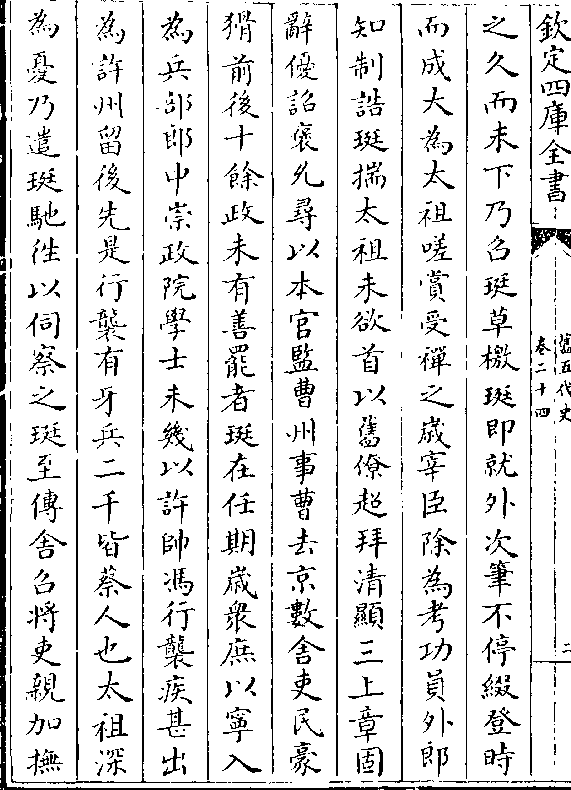 欽定四庫全書
舊五代史
卷二十四
二
之久而未下乃召珽草檄珽即就外次筆不停綴登時
而成大為太祖嗟賞受禪之歳宰臣除為考功員外郎
知制誥珽揣太祖未欲首以舊僚超拜清顯三上章固
辭優詔褒允尋以本官監曹州事曹去京數舍吏民豪
猾前後十餘政未有善罷者珽在任期歳衆庶以寧入
為兵部郎中崇政院學士未幾以許帥馮行襲疾甚出
為許州留後先是行襲有牙兵二千皆蔡人也太祖深
為憂乃遣珽馳徃以伺察之珽至傳舍召將吏親加撫